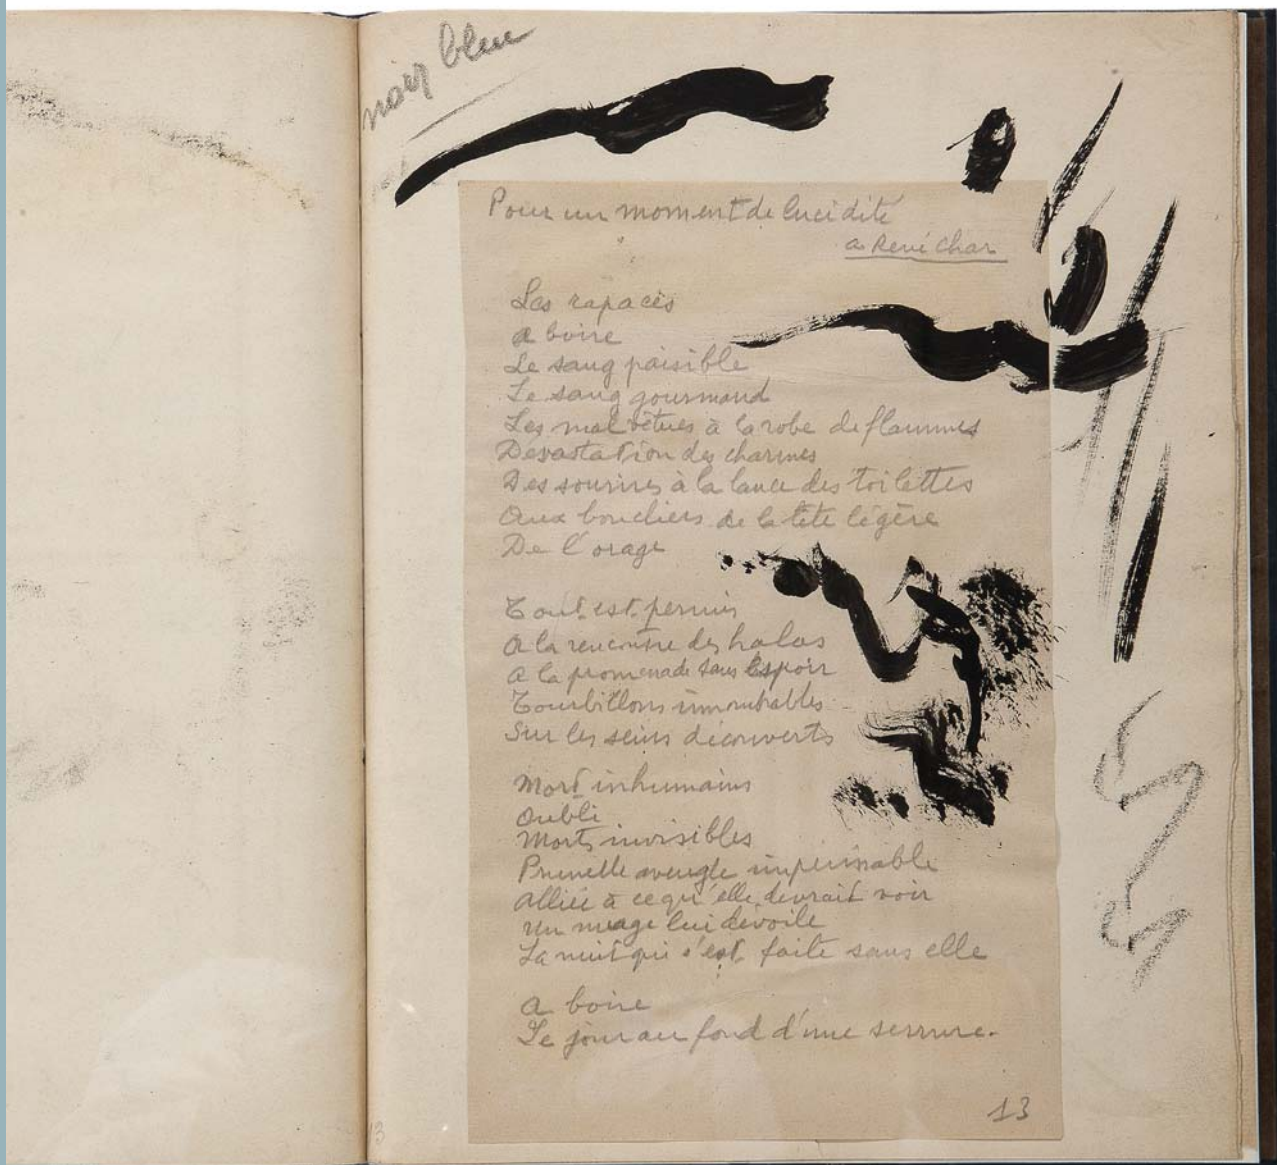 noir bleu
Pour un moment de lucidité
a René Char
Les rapaces
a boire
Le sang paisible
Le sang gourmand
Les mal vêtues à la robe de flammes
Devastation des charmes
Des sourires à la lance des toilettes
Aux boucliers de la tête légère
De l'orage
Tout est permis
A la rencontre des halos
A la promenade sans Espoir
Tourbillons innombrables
Sur les seins découverts
Mort inhumains
Oubli
Morts invisibles
Prunelle aveugle impérissable
Alliée à ce qu'elle devrait voir
Un nuage lui dévoile
La nuit qui s'est faite sans elle
A boire
Le jour au fond d'une serrure.
13